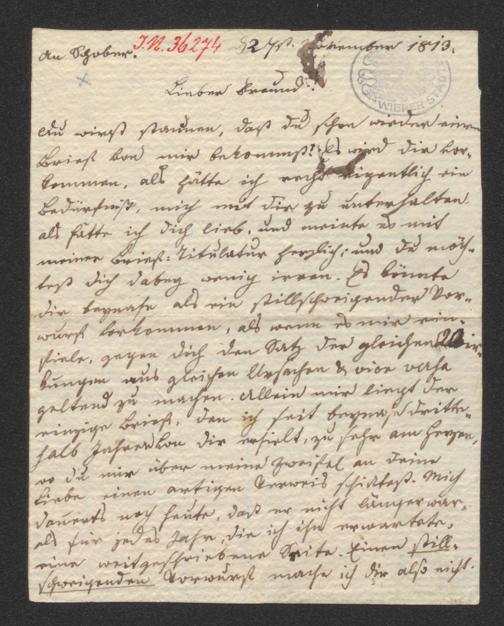 An Schober. J.N. 36274 27st. November 1813.
WIENER STADT
Lieber Freund!
Du wirst staunen, daß du schon wieder einen
Brief von mir bekommst! Es wird dir vor-
kommen, als hätte ich recht eigentlich ein
Bedürfniß, mich mit dir zu unterhalten
als hätte ich dich lieb, und meinte es mit
meiner Brief-Titulatur herzlich; und du möch-
test dich dabey wenig irren. Es könnte
dir beynahe als ein stillschweigender Vor-
wurf vorkommen, als wenn es mir ein-
fiele, gegen dich den Satz der gleichen Wir-
kungen aus gleichen Ursachen & vice versa
geltend zu machen. Allein mir liegt der
einzige Brief, den ich seit beynahe dritte-
halb Jahren von dir erhielt, zu sehr am Herzen,
wo du mir über meine Zweifel an deine
Liebe einen artigen Verweis schicktest. Mich
dauert noch heute, daß er nicht länger war,
als für jedes Jahr, die ich ihn erwartete,
eine weitgeschriebene Seite. Einen still-
schweigenden Vorwurf mache ich dir also nicht.